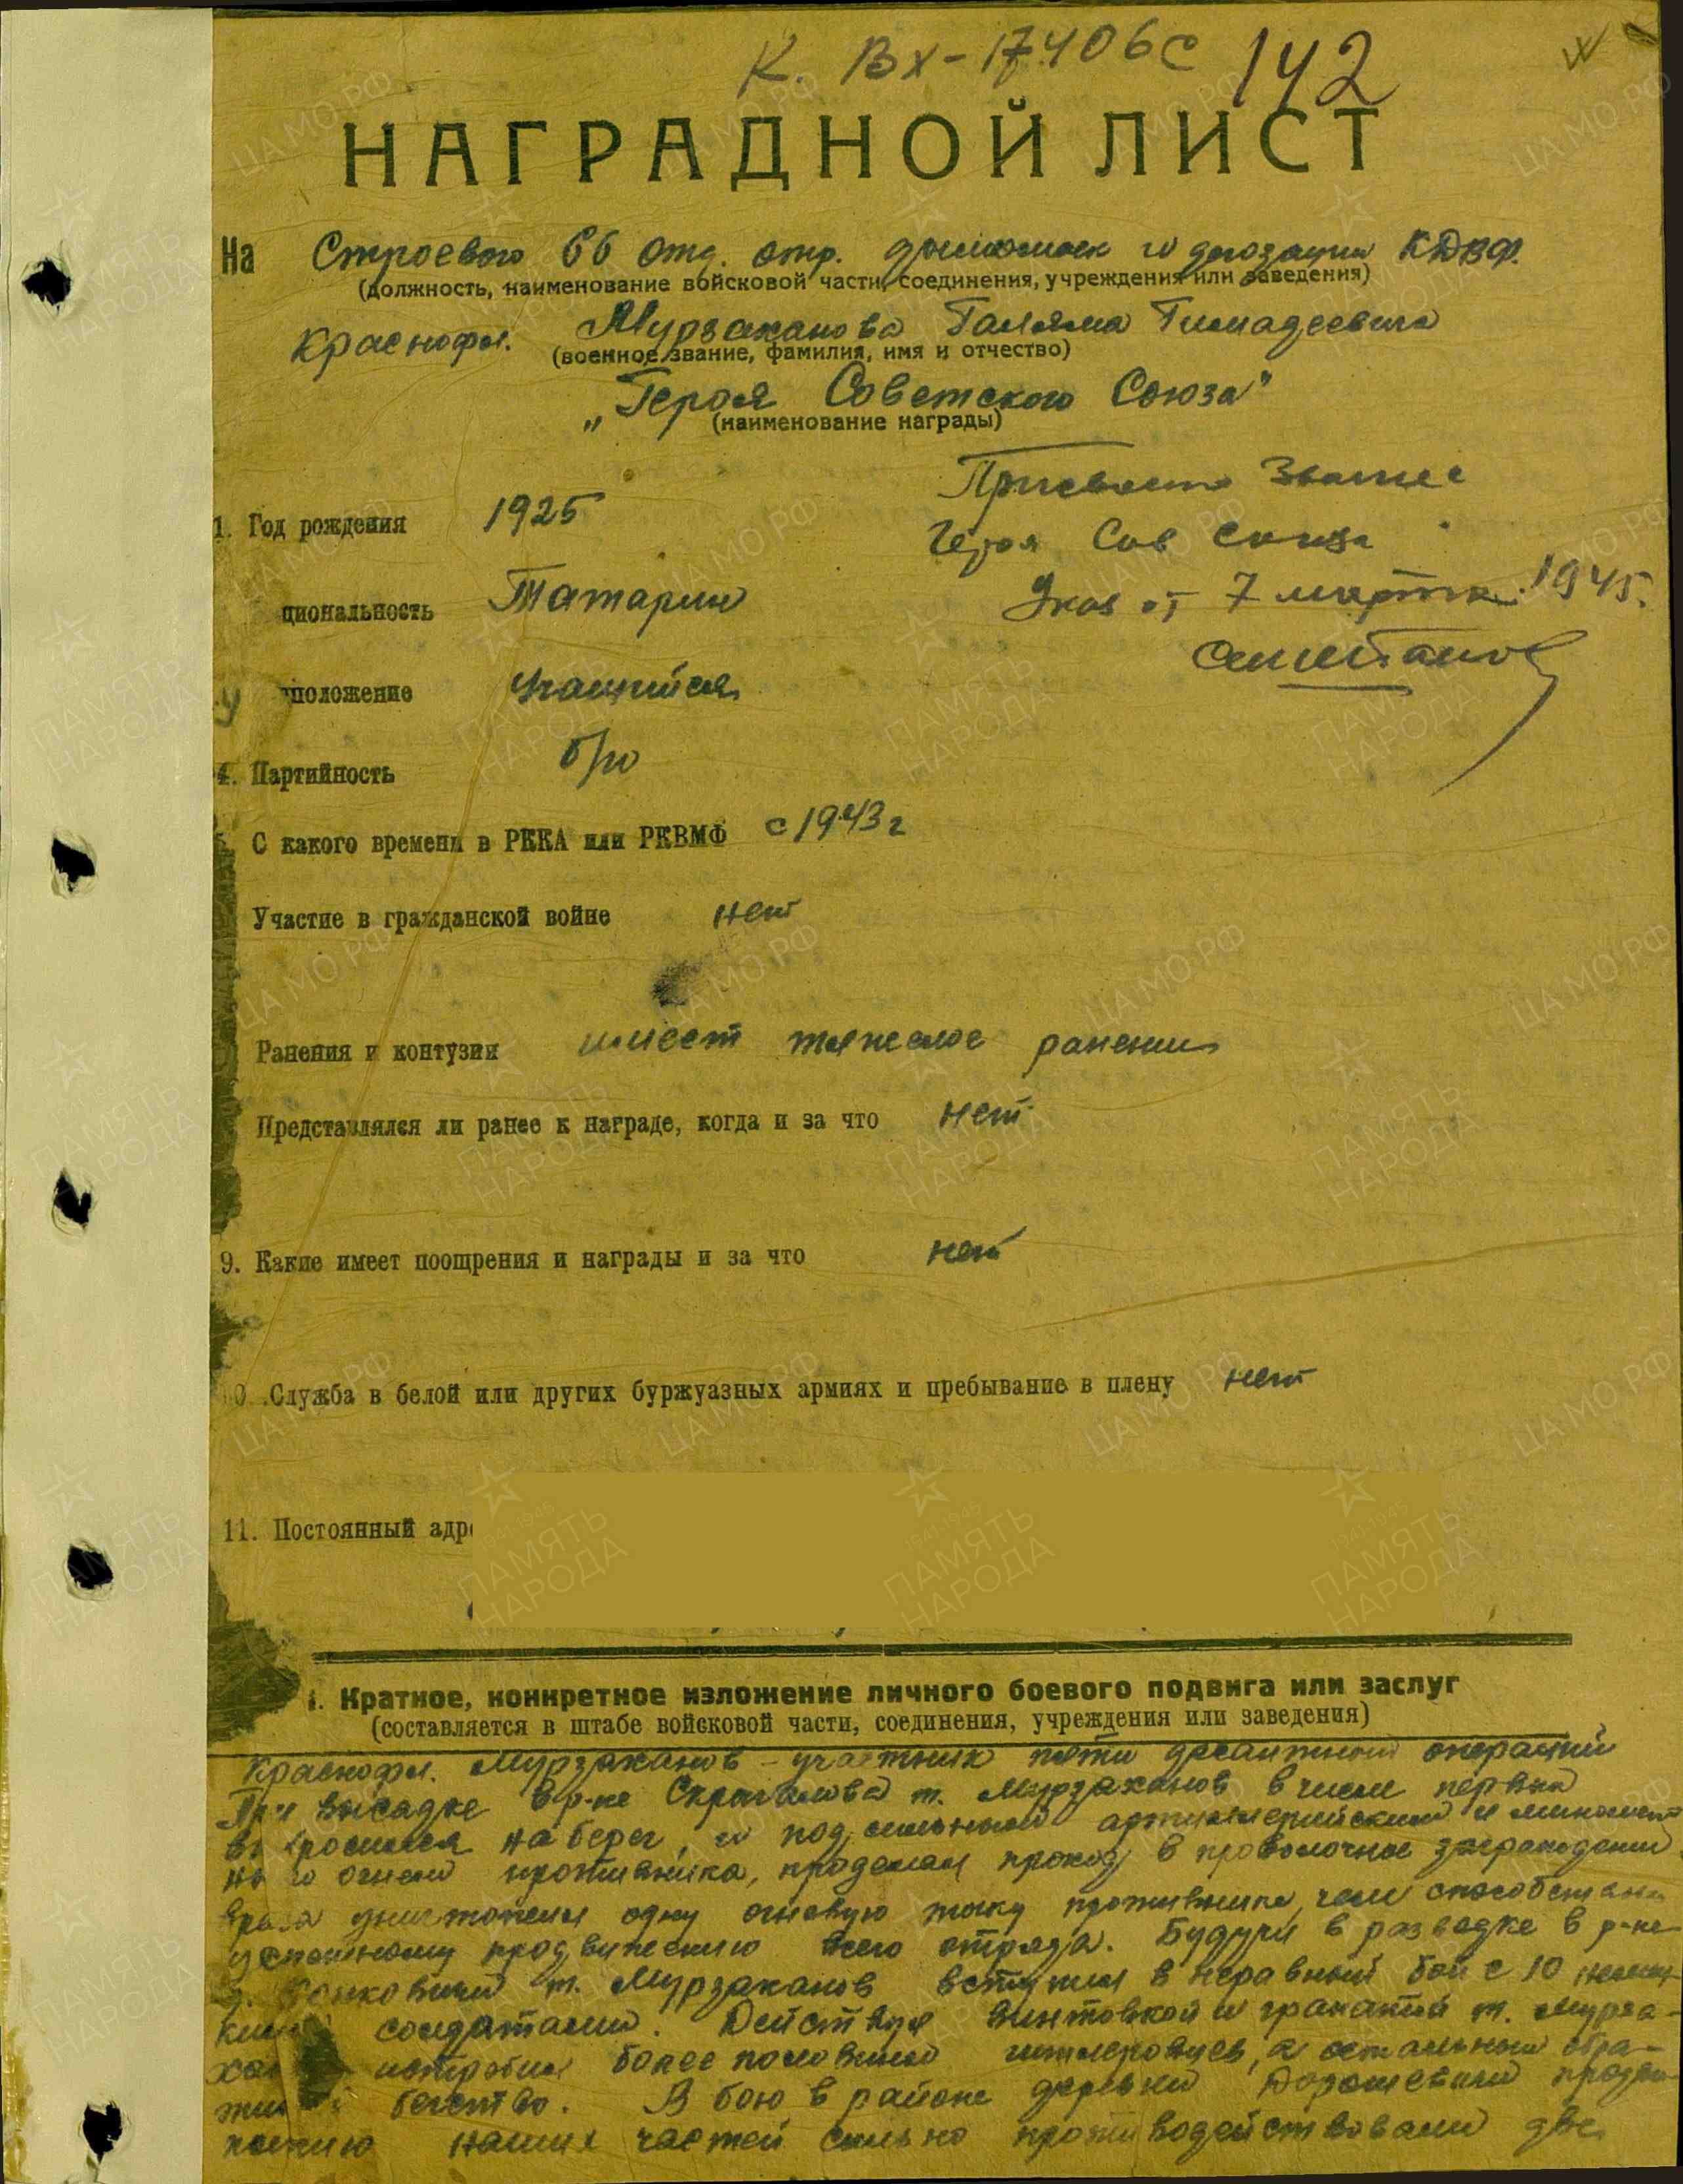 К. Вх-17406с 142
НАГРАДНОЙ ЛИСТ
На Строевого 66 отд. отр. дымомаск и дегазации КДВФ.
(должность, наименование войсковой части, соединения, учреждения или заведения)
Краснофл. Мурзаханова Галяма Гимадеевича
(военное звание, фамилия, имя и отчество)
„Героя Советского Союза"
(наименование награды)
Присвоено Звание
Героя Сов Союза
Указ от 7 марта 1945.
1. Год рождения 1925
циональность Татарин
положение Учащийся
4. Партийность б/п
С какого времени в РККА или РКВМФ с 1943 г
Участие в гражданской войне нет
Ранения и контузии имеет тяжелое ранение
Представлялся ли ранее к награде, когда и за что нет
9. Какие имеет поощрения и награды и за что нет
0. Служба в белой или других буржуазных армиях и пребывание в плену нет
11. Постоянный адре
I. Краткое, конкретное изложение личного боевого подвига или заслуг
(составляется в штабе войсковой части, соединения, учреждения или заведения)
Краснофл. Мурзаханов – участник пяти десантных операций
При высадке в р-не Скрыгалова т. Мурзаханов в числе первых
бросился на берег, и под сильным артиллерийским и миномет
но го огнем противника, проделал проход в проволочное заграждении
врага уничтожил одну огневую точку противника, чем способствовал
успешному продвижению всего отряда. Будучи в разведке в р-не
д. Конковичи т. Мурзаханов вступил в неравный бой с 10 немец-
кими солдатами. Действуя винтовкой и гранатой т. Мурза-
ха истребил более половины гитлеровцев, а остальных обра-
тил в бегство. В бою в районе деревни Дорошевичи продви-
жению наших частей сильно противодействовали две
ПАМЯТЬ НАРОДА
ЦА МО РФ